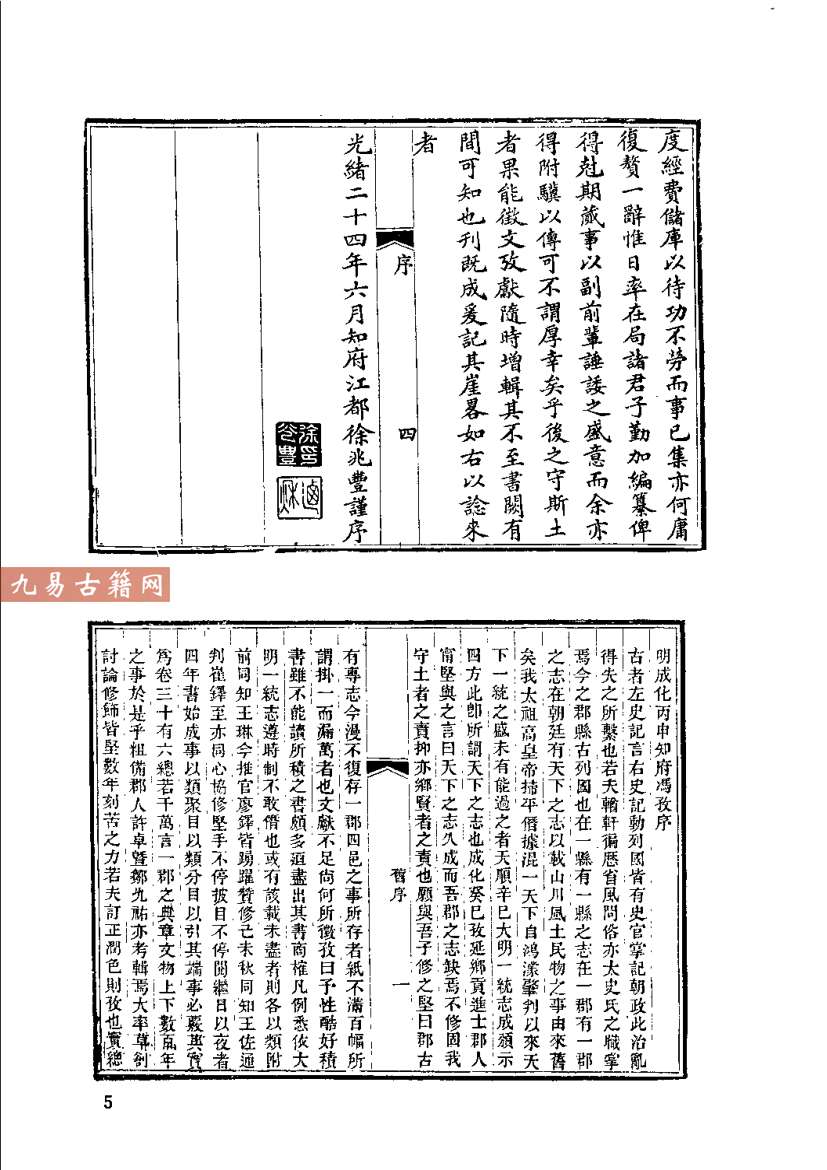 度經費儲庫以待功不勞而事已集亦何庸
復贅一辭惟日率在局諸君子勤加編纂俾
得尅期蕆事以副前輩諈諉之盛意而余亦
得附驥以傳可不謂厚幸矣乎後之守斯土
者果能徵文攷獻隨時增輯其不至書闕有
間可知也刊既成爰記其崖畧如右以諗來
者
序
四
光緒二十四年六月知府江都徐兆豐謹序
徐兆豐印
九易古籍网
明成化丙申知府馮孜序
古者左史記言右史記動列國皆有史官掌記朝政此治亂
得失之所繫也若夫輶軒徧歷省風問俗亦太史氏之職掌
焉今之郡縣古列國也在一縣有一縣之志在一郡有一郡
之志在朝廷有天下之志以載山川風土民物之事由來舊
矣我太祖高皇帝掃平僭據混一天下自鴻濛肇判以來天
下一統之盛未有能過之者天順辛巳大明一統志成頒示
四方此卽所謂天下之志也成化癸巳孜延鄉貢進士郡人
甯堅與之言曰天下之志久成而吾郡之志缺焉不修固我
守土者之責抑亦鄉賢者之責也願與吾子修之堅曰郡古
舊序
一
有專志今漫不復存一郡四邑之事所存者紙不滿百幅所
謂掛一而漏萬者也文獻不足尙何所徵孜曰予性酷好積
書雖不能讀所積之書頗多頭盡出其書商榷凡例悉依大
明一統志遵時制不敢僭也或有該載未盡者則各以類附
前同知王琳今推官廖鐸皆踴躍贊修己未秋同知王佐通
判崔鐸至亦同心協修堅手不停披目不停閱繼日以夜者
四年書始成事以類聚目以類分目以引其端事必覈其實
爲卷三十有六總若千萬言一郡之典章文物上下數百年
之事於是乎粗備郡人許卓暨鄒九祐亦考輯焉大率草創
討論修飾皆堅數年刻苦之力若夫訂正潤色則孜也實總
5